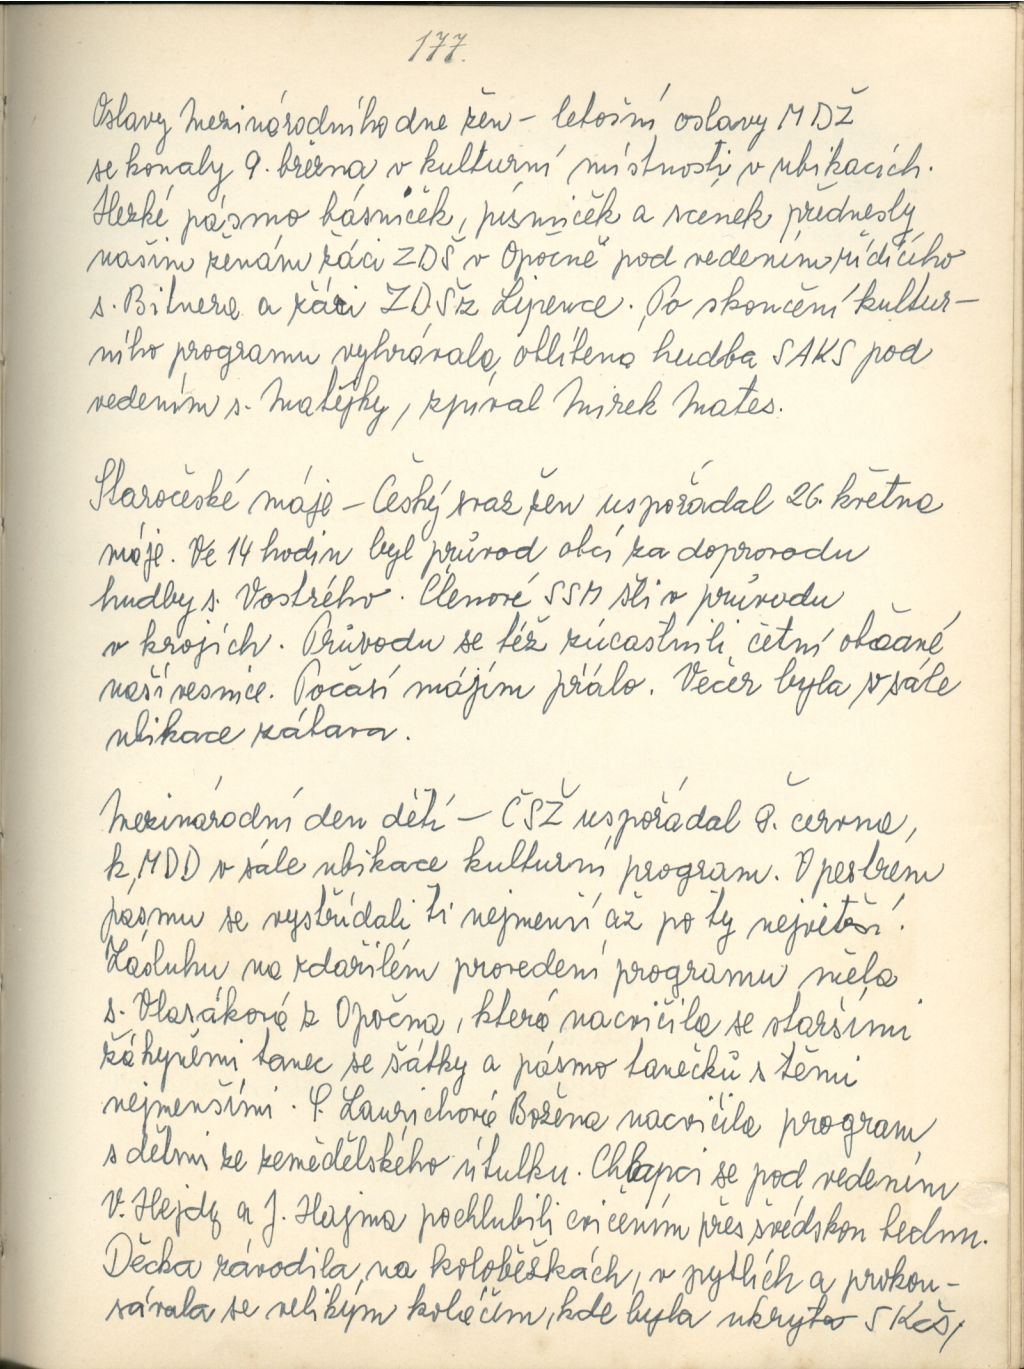 177.
Oslavy Mezinárodního dne žen – letošní oslavy MDŽ
se konaly 9. března v kulturní místnosti v ubikacích.
Hezké pásmo básniček, písniček a scenek přednesly
našim ženám žáci ZDŠ v Opočně pod vedením řídícího
s. Bitnera a žáci ZDŠ z Lipence. Po skončení kultur-
ního programu vyhrávala oblíbená hudba SAKS pod
vedením s. Matějky, zpíval Mirek Mates.
Staročeské máje – Český svaz žen uspořádal 26. května
máje. Ve 14 hodin byl průvod obcí za doprovodu
hudby s. Vostrého. Členové SSM šli v průvodu
v krojích. Průvodu se též zúčastnili četní občané
naší vesnice. Počasí májím přálo. Večer byla v sále
ubikace zábava.
Mezinárodní den dětí – ČSŽ uspořádal 8. června,
k MDD v sále ubikace kulturní program. V pestrém
pásmu se vystřídali ti nejmenší až po ty největší.
Zásluhu na zdařilém provedení programu měla
s. Vlasáková z Opočna, která nacvičila se staršími
žákyněmi tanec se šátky a pásmo tanečků s těmi
nejmenšími. S. Laurichová Božena nacvičila program
s dětmi ze zemědělského útulku. Chlapci se pod vedením
V. Hejdy a J. Hajma pochlubili cvičením přes švédskou bednu.
Děcka závodila na koloběžkách, v pytlích a prokou-
sávala se velikým koláčem, kde byla ukryta 5 Kčs,